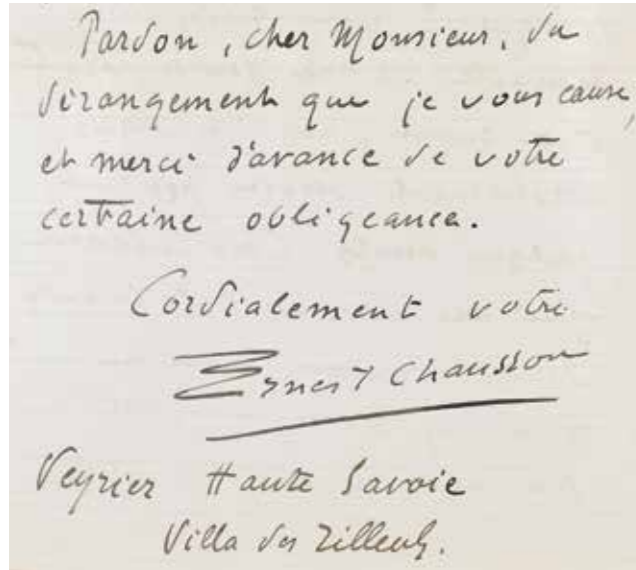 Pardon, cher Monsieur, du
dérangement que je vous cause,
et merci d'avance de votre
certaine obligeance.
Cordialement votre
Ernest Chausson
Veyrier Haute Savoie
Villa des Tilleuls.